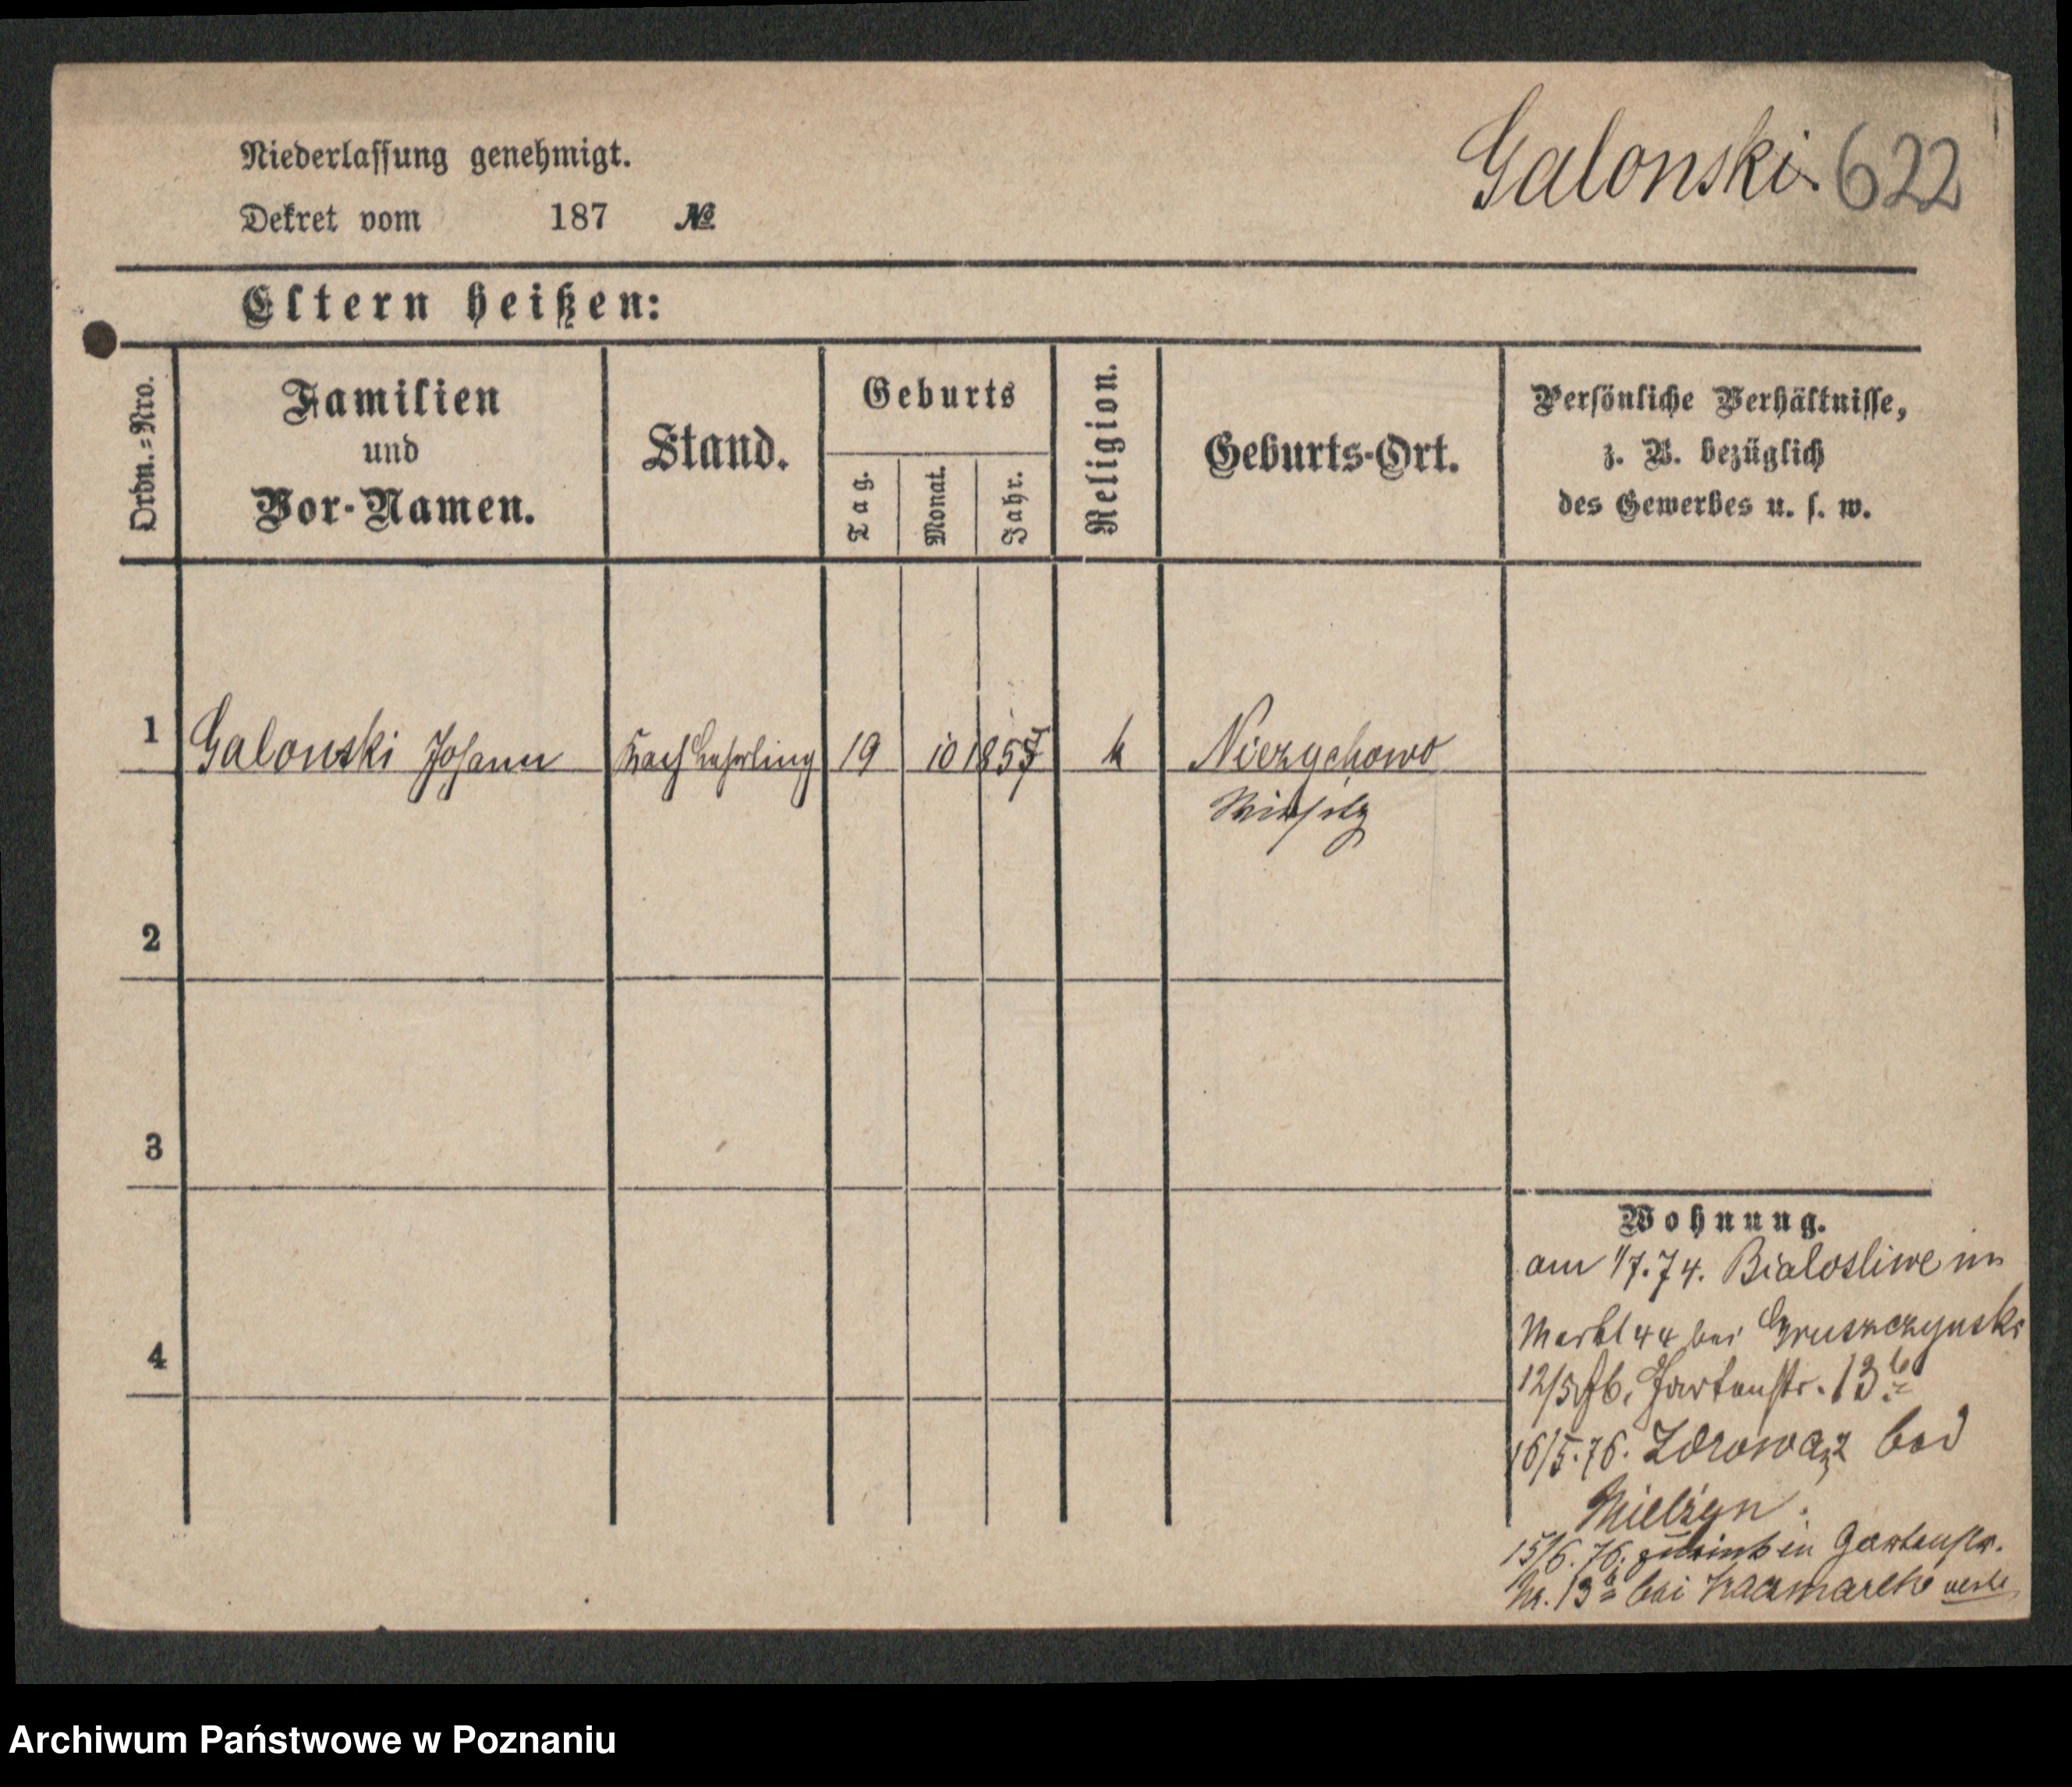 Niederlassung genehmigt.
Dekret vom 187 №
Galonski. 622
Eltern heißen:
Ordn.=Nro.
Familien
und
Vor-Namen.
Stand.
Geburts
Tag.
Monat.
Jahr.
Religion.
Geburts-Ort.
Persönliche Verhältnisse,
z. B. bezüglich
des Gewerbes u. s. w.
1 Galonski Johann 19 10 185 k Niezychowo
Wirsitz
2
3
4
Wohnung.
am 1/7.74. Bialosliwe im
Markt 44 bei Gruszczynski
12/5 76. Gartenstr. 13b
16/5.76. Zdrowaz bei
Mielżyn.
15/6. 76. zurück in Gartenstr.
Nr. 13b bei Kaczmarek
Archiwum Państwowe w Poznaniu